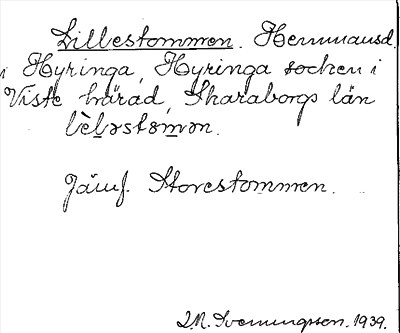 Lillestommen. Hemmansd.
i Hyringa, Hyringa socken i
Viste härad, Skaraborgs län
Jämf. Storestommen.
1939.